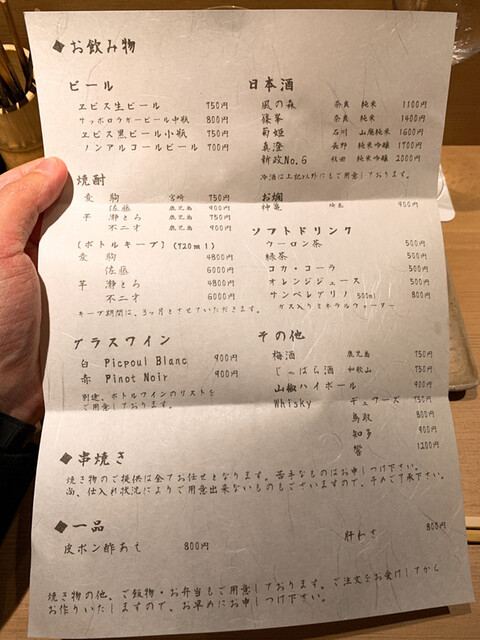 ◆お飲み物
ビール
ヱビス生ビール 750円
サッポロラガービール中瓶 800円
ヱビス黒ビール小瓶 750円
ノンアルコールビール 700円
焼酎
麦 駒 宮崎 750円
佐藤 鹿児島 900円
芋 瀞とろ 鹿児島 750円
不二才 鹿児島 900円
(ボトルキープ)(720ml)
麦 駒 4800円
佐藤 6000円
芋 瀞とろ 4800円
不二才 6000円
キープ期間は、3ヶ月とさせていただきます。
グラスワイン
白 Picpoul Blanc 900円
赤 Pinot Noir 900円
別途、ボトルワインのリストを
ご用意しております。
日本酒
風の森 奈良 純米 1100円
篠峯 奈良 純米 1400円
菊姫 石川 山廃純米 1600円
真澄 長野 純米吟醸 1700円
新政No.6 秋田 純米吟醸 2000円
冷酒は上記以外にもご用意しております。
お燗
神亀 埼玉 950円
ソフトドリンク
ウーロン茶 500円
緑茶 500円
コカ・コーラ 500円
オレンジジュース 500円
サンペレグリノ 500ml 800円
ガス入りミネラルウォーター
その他
梅酒 鹿児島 750円
じゃばら酒 和歌山 750円
山椒ハイボール 900円
Whisky デュワーズ 750円
鳥取 800円
知多 900円
響 1200円
◆串焼き
焼き物のご提供は全てお任せとなります。苦手なものはお申しつけ下さい。
尚、仕入れ状況によりご用意出来ないものもございますので、予めご了承下さい。
◆一品
皮ポン酢あて 800円
肝わさ 800円
焼き物の他、ご飯物・お弁当もご用意しております。ご注文をお受けしてから
お作りいたしますので、お早めにお申しつけ下さい。